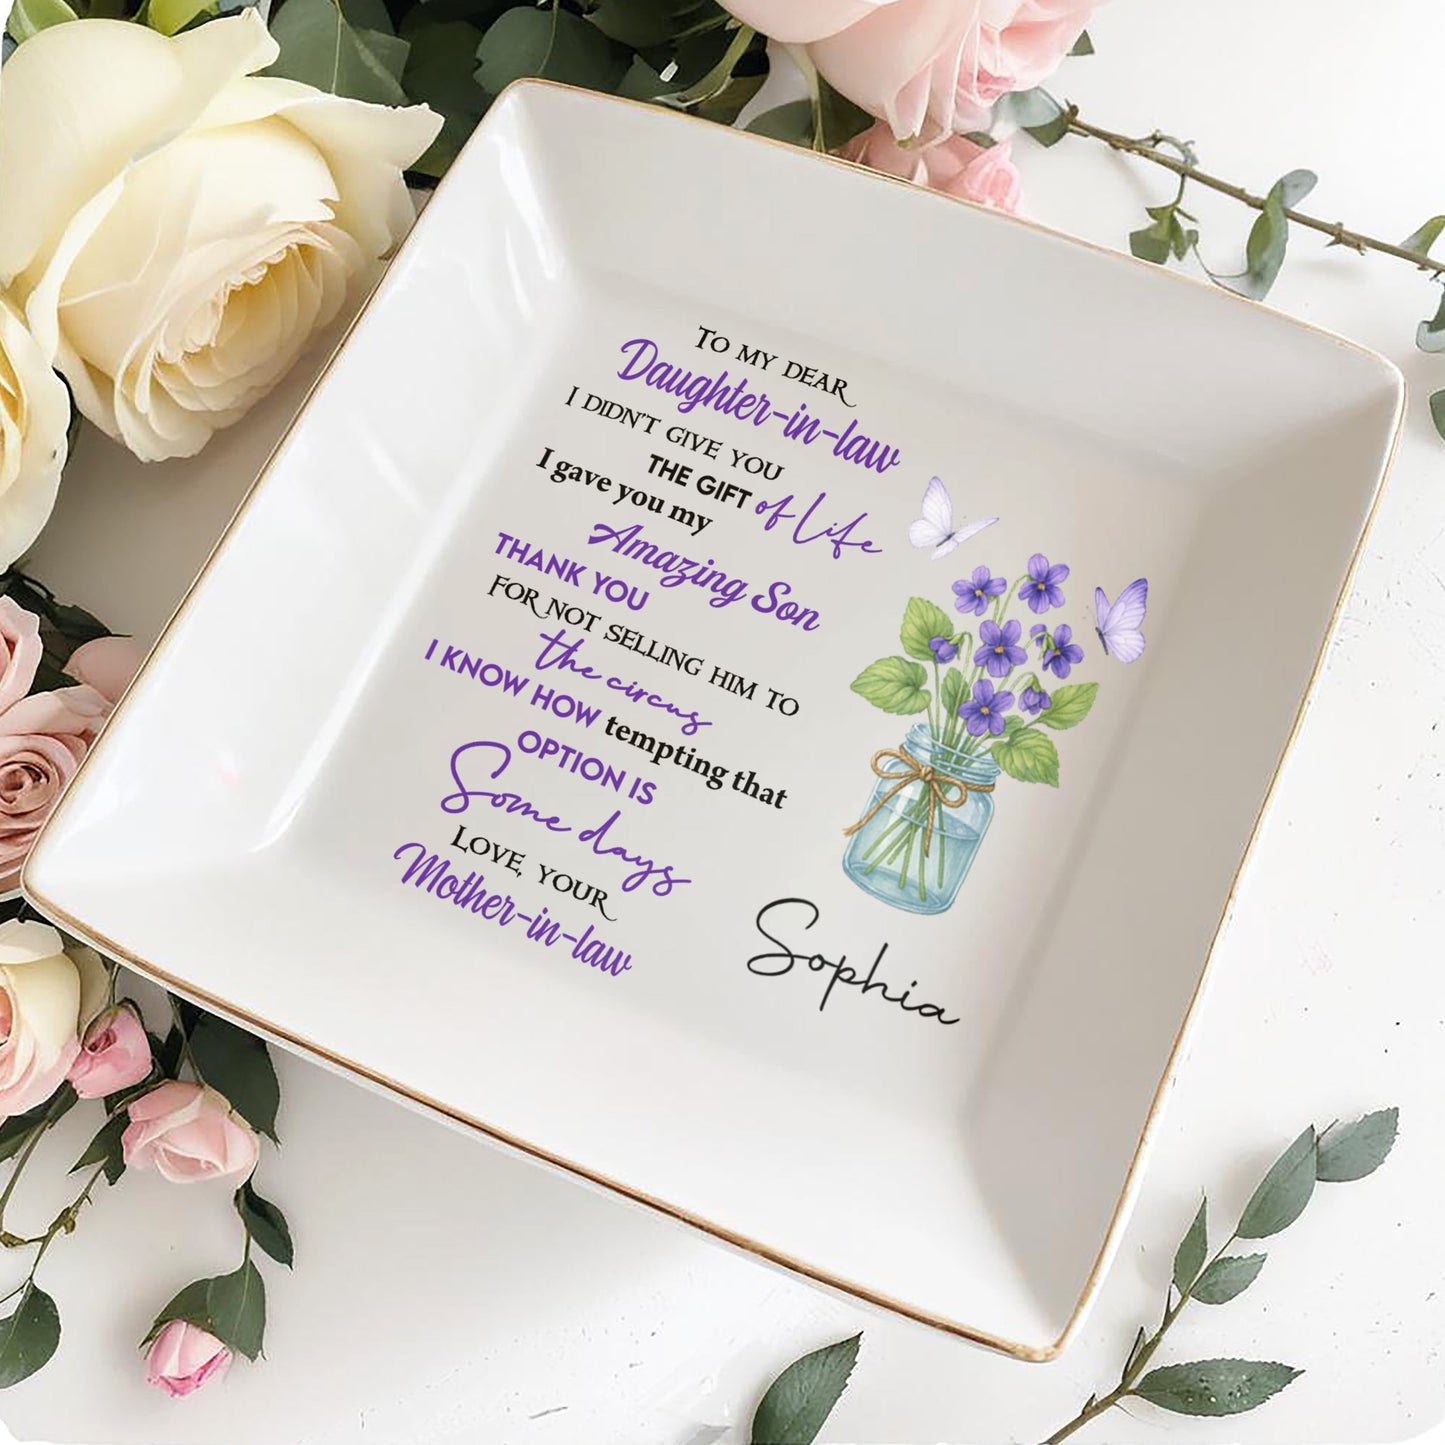 TO MY DEAR
Daughter-in-law
I DIDN'T GIVE YOU
THE GIFT of Life
I gave you my
Amazing Son
THANK YOU
FOR NOT SELLING HIM TO
the circus
I KNOW HOW tempting that
OPTION IS
Some days
LOVE, YOUR
Mother-in-law
Sophia